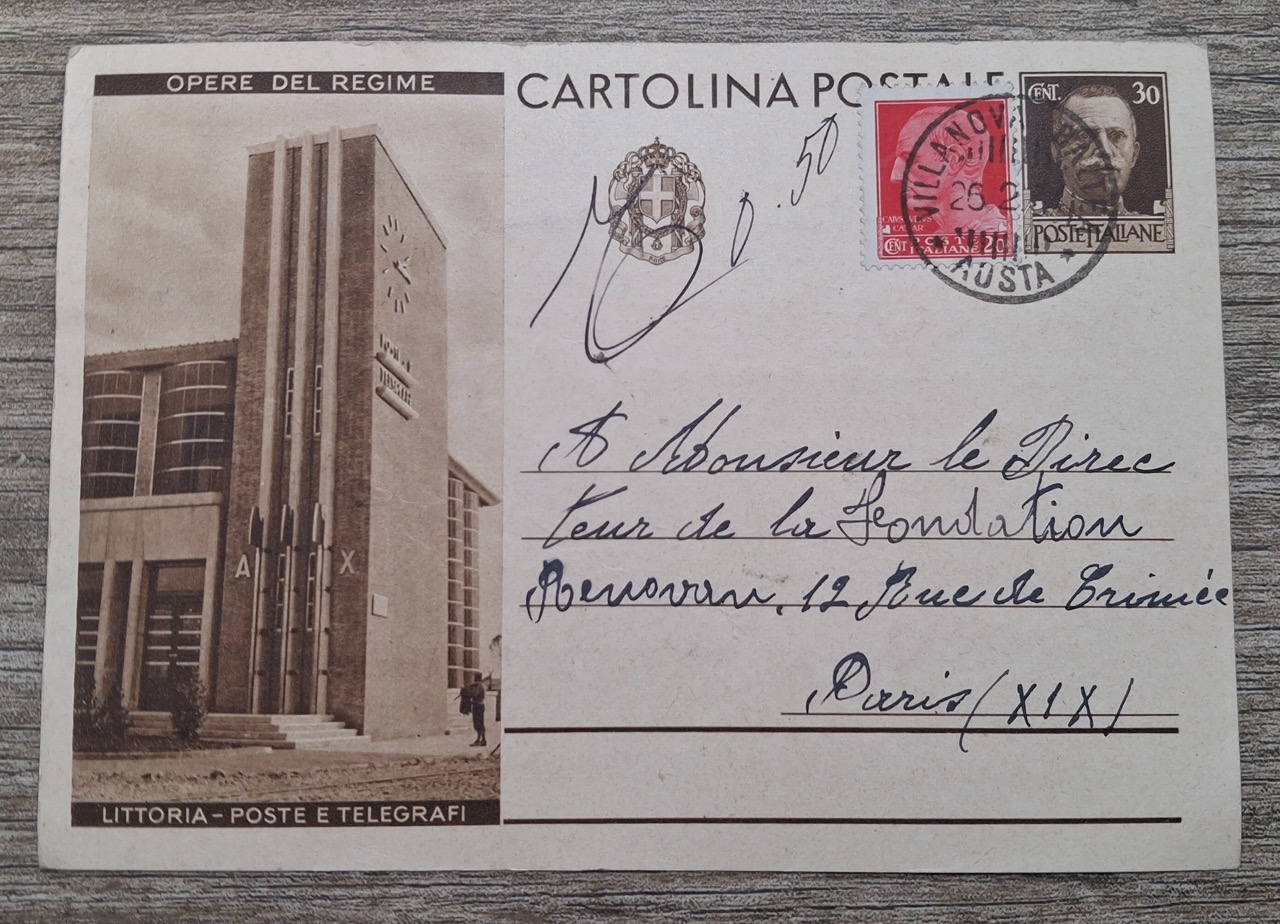 OPERE DEL REGIME
CARTOLINA POSTALE
CENT. 30
POSTE ITALIANE
CAIVS IVLIVS
CAESAR
POSTE
CENT ITALIANE 20
VILLANOVA
26.2
AOSTA
0.50
A X
A Monsieur le Direc
teur de la Fondation
Renovan, 12 Rue de Crimée
Paris (XIX)
LITTORIA - POSTE E TELEGRAFI